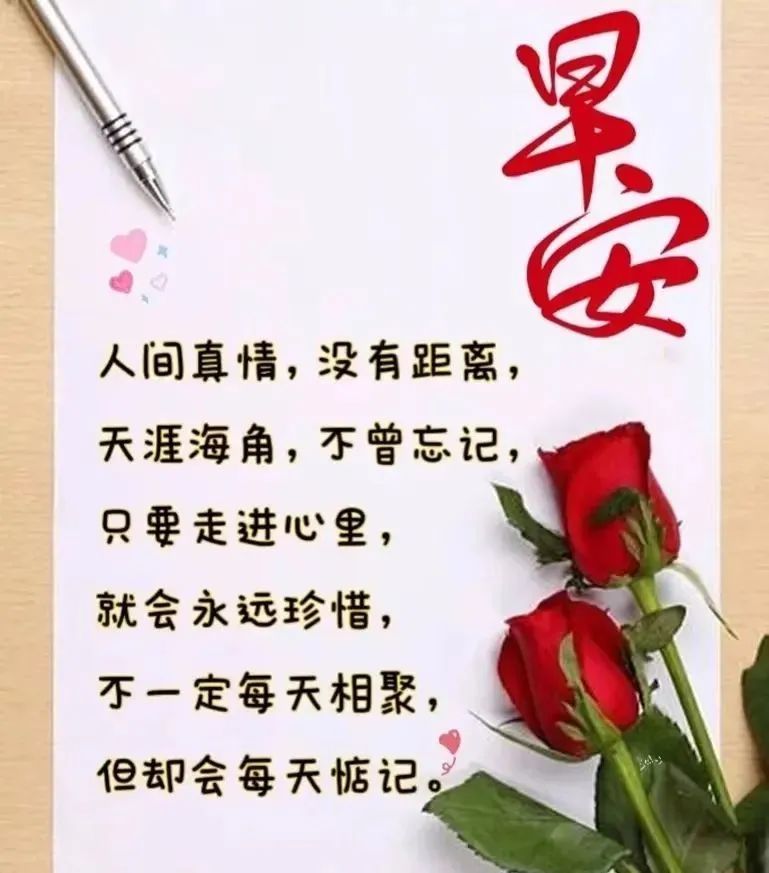 早安
人间真情，没有距离，
天涯海角，不曾忘记，
只要走进心里，
就会永远珍惜，
不一定每天相聚，
但却会每天惦记。